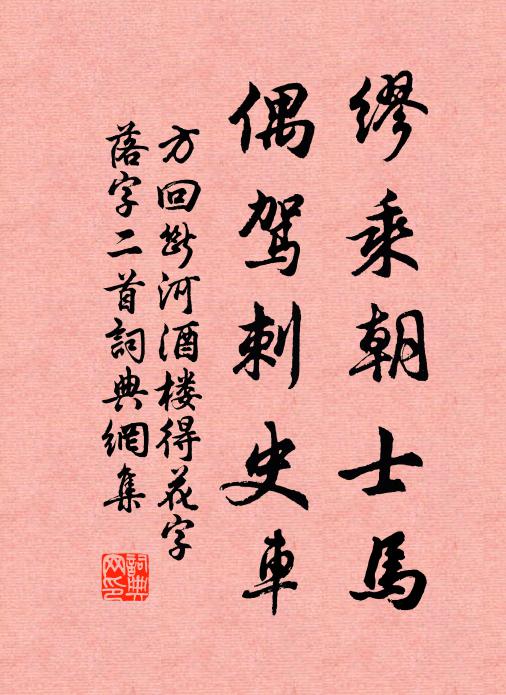 缪乘朝士馬
偶驾刺史車
方回斷河酒楼得花字
落字二首詞典網集
詞典網印